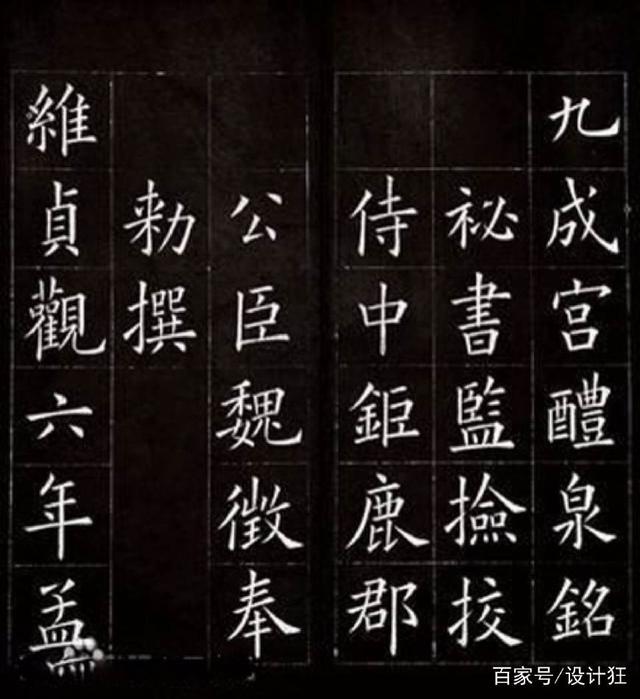 九成宮醴泉銘
祕書監撿挍
侍中鉅鹿郡
公臣魏徵奉
勑撰
維貞觀六年孟
百家号/设计狂